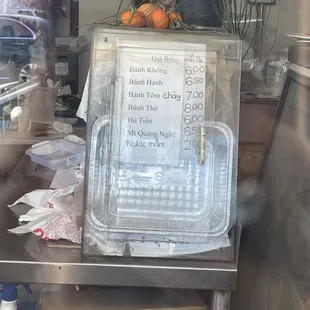 Bánh Không 6.00
Bánh Hành 6.50
Bánh Tôm cháy 7.00
Bánh Thịt 8.00
Hủ Tiếu 6.00
Mì Quảng Nghệ 6.50
Nước mắm